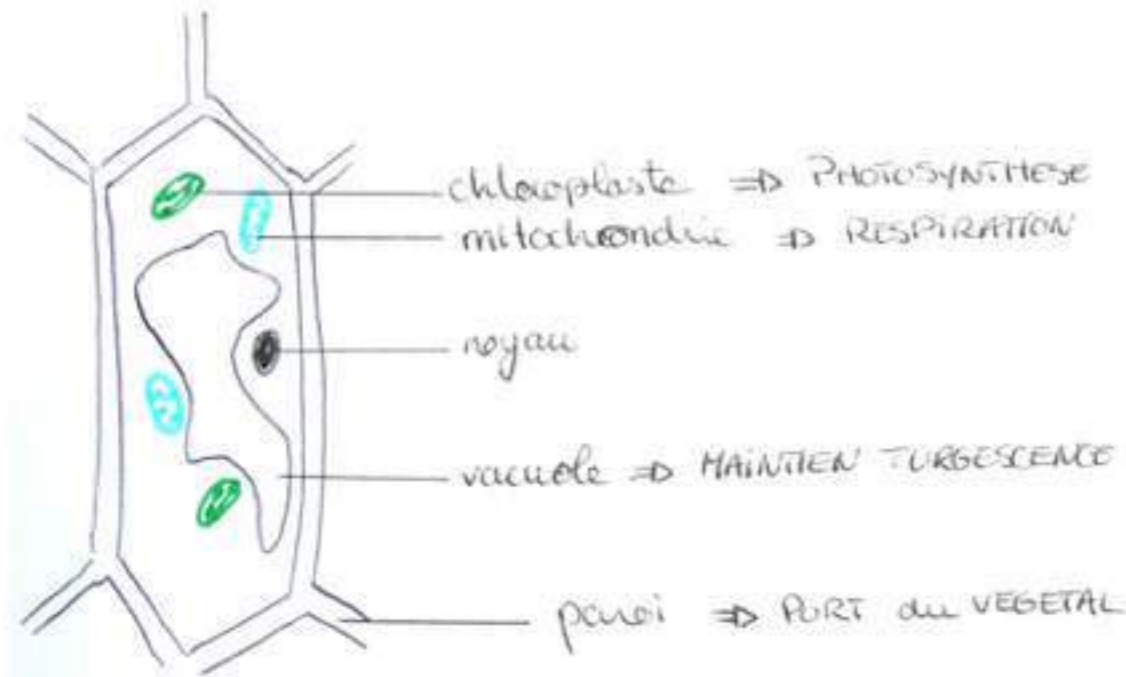 chloroplaste ⇒ PHOTOSYNTHESE
mitochondrie ⇒ RESPIRATION
noyau
vacuole ⇒ MAINTIEN TURGESCENCE
paroi ⇒ PORT du VEGETAL